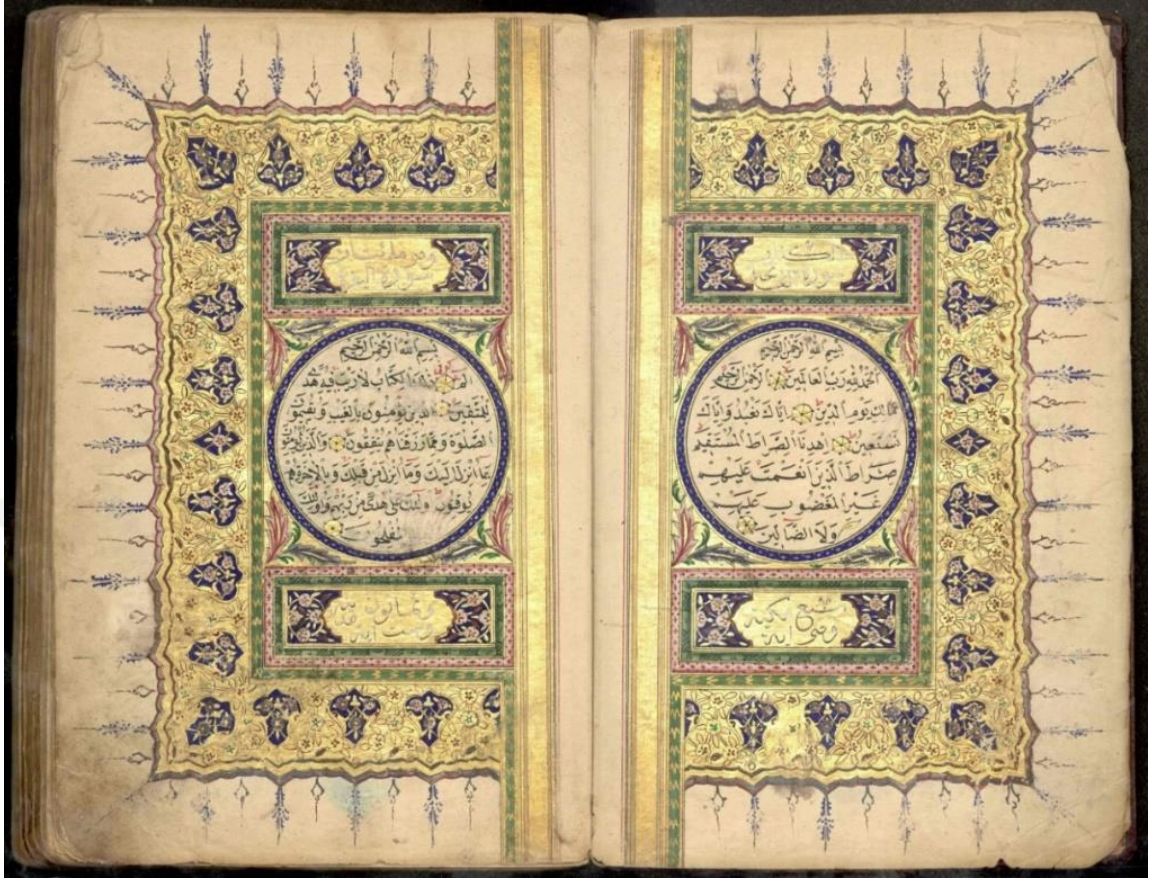 سورة الفاتحة
بسم الله الرحمن الرحيم
الحمد لله رب العالمين الرحمن الرحيم
مالك يوم الدين اياك نعبد واياك
نستعين اهدنا الصراط المستقيم
صراط الذين انعمت عليهم
غير المغضوب عليهم
ولا الضالين
سبع
وهى اية
سورة البقرة
بسم الله الرحمن الرحيم
الم ذلك الكتاب لا ريب فيه هدى
للمتقين الذين يؤمنون بالغيب ويقيمون
الصلوة ومما رزقناهم ينفقون والذين يؤمنون
بما انزل اليك وما انزل من قبلك وبالاخرة هم
يوقنون اولئك على هدى من ربهم واولئك
المفلحون
وثمانون